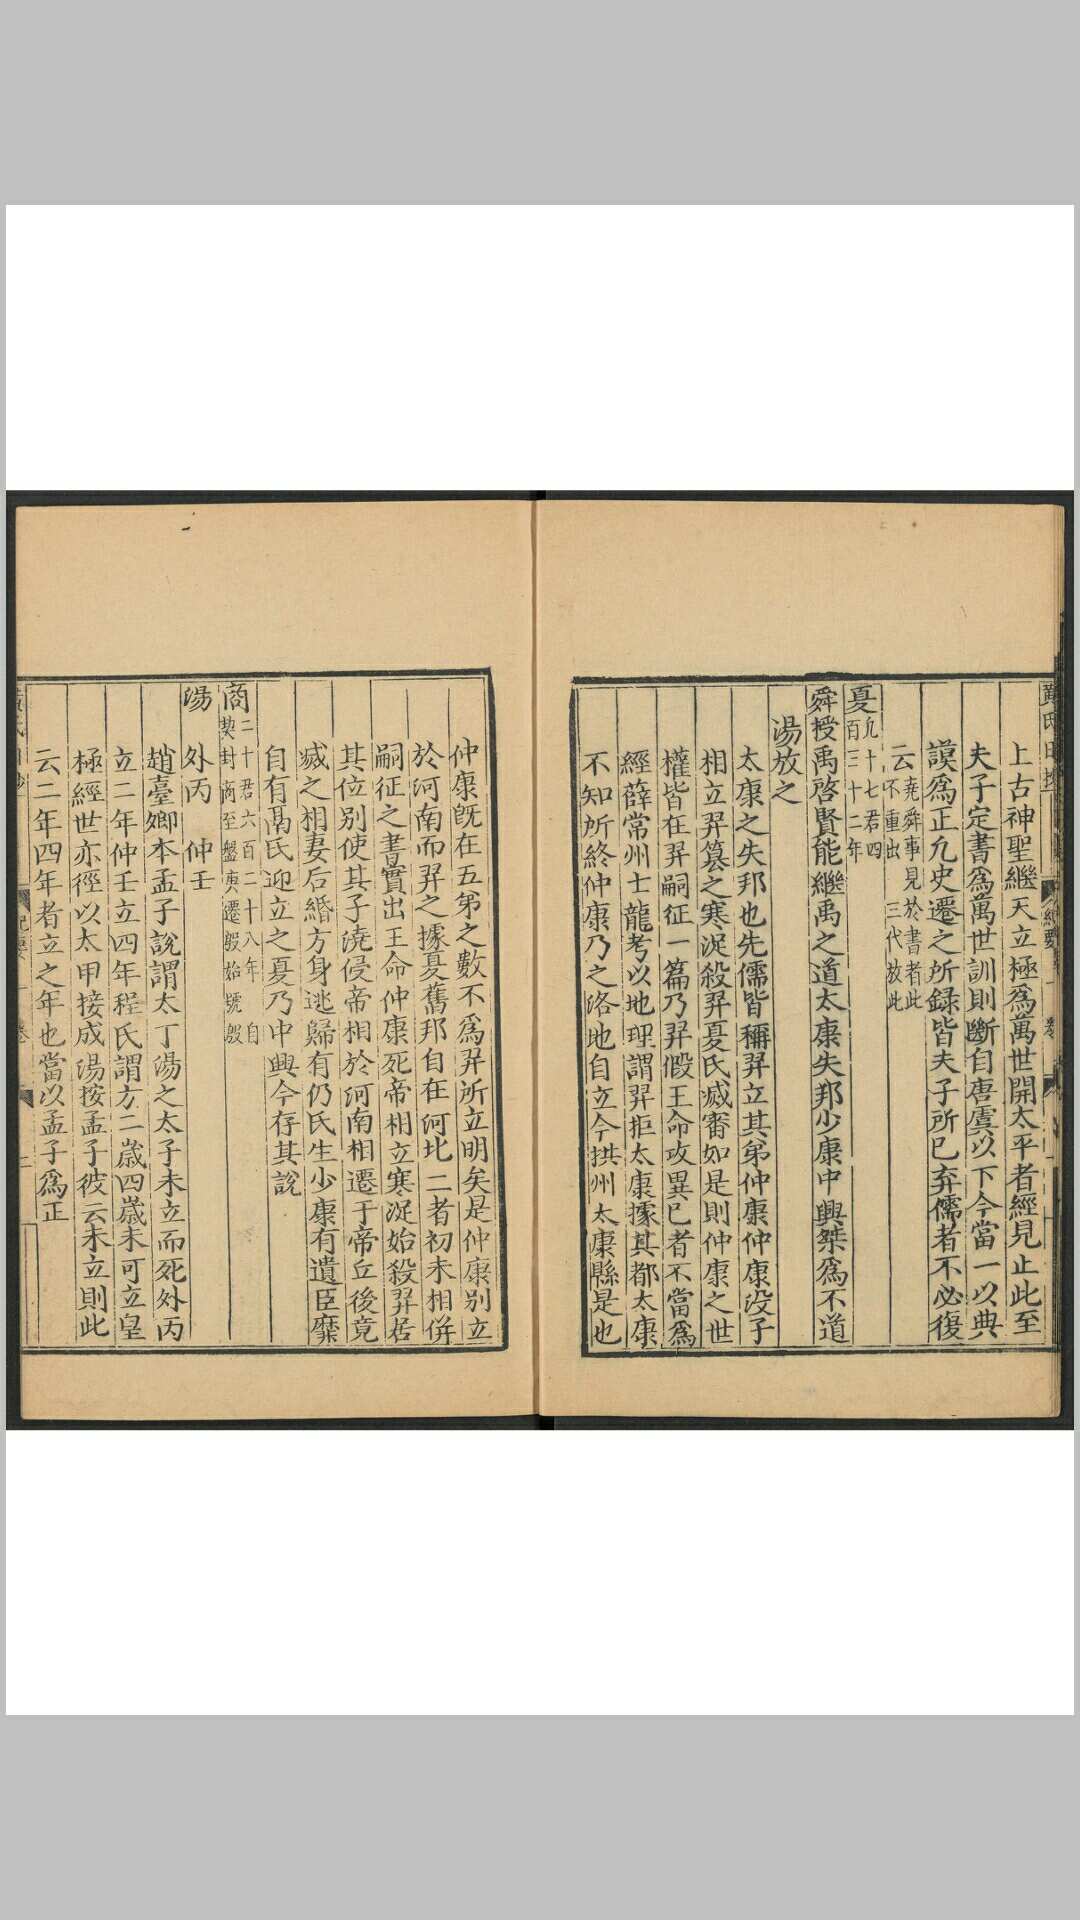 黄氏日抄
紀要
卷
上古神聖繼天立極爲萬世開太平者經見止此至
夫子定書爲萬世訓則斷自唐虞以下今當一以典
謨爲正凢史遷之所録皆夫子所已弃儒者不必復
云堯舜事見於書者此不重出三代放此
夏凢十七君四百三十二年
舜授禹啓賢能繼禹之道太康失邦少康中興桀爲不道
湯放之
太康之失邦也先儒皆稱羿立其弟仲康仲康没子
相立羿簒之寒浞殺羿夏氏㓕審如是則仲康之世
權皆在羿嗣征一篇乃羿假王命攻異已者不當爲
經薛常州士龍考以地理謂羿拒太康據其都太康
不知所終仲康乃之洛地自立今拱州太康縣是也
仲康旣在五弟之數不爲羿所立明矣是仲康别立
於河南而羿之據夏舊邦自在河北二者初未相併
嗣征之書實出王命仲康死帝相立寒浞始殺羿居
其位别使其子澆侵帝相於河南相遷于帝丘後竟
㓕之相妻后緡方身逃歸有仍氏生少康有遺臣靡
自有鬲氏迎立之夏乃中興今存其說
商二十君六百二十八年自契封商至盤庚遷殷始號殷
湯 外丙 仲壬
趙臺卿本孟子說謂太丁湯之太子未立而死外丙
立二年仲壬立四年程氏謂方二歲四歲未可立皇
極經世亦徑以太甲接成湯按孟子彼云未立則此
云二年四年者立之年也當以孟子爲正